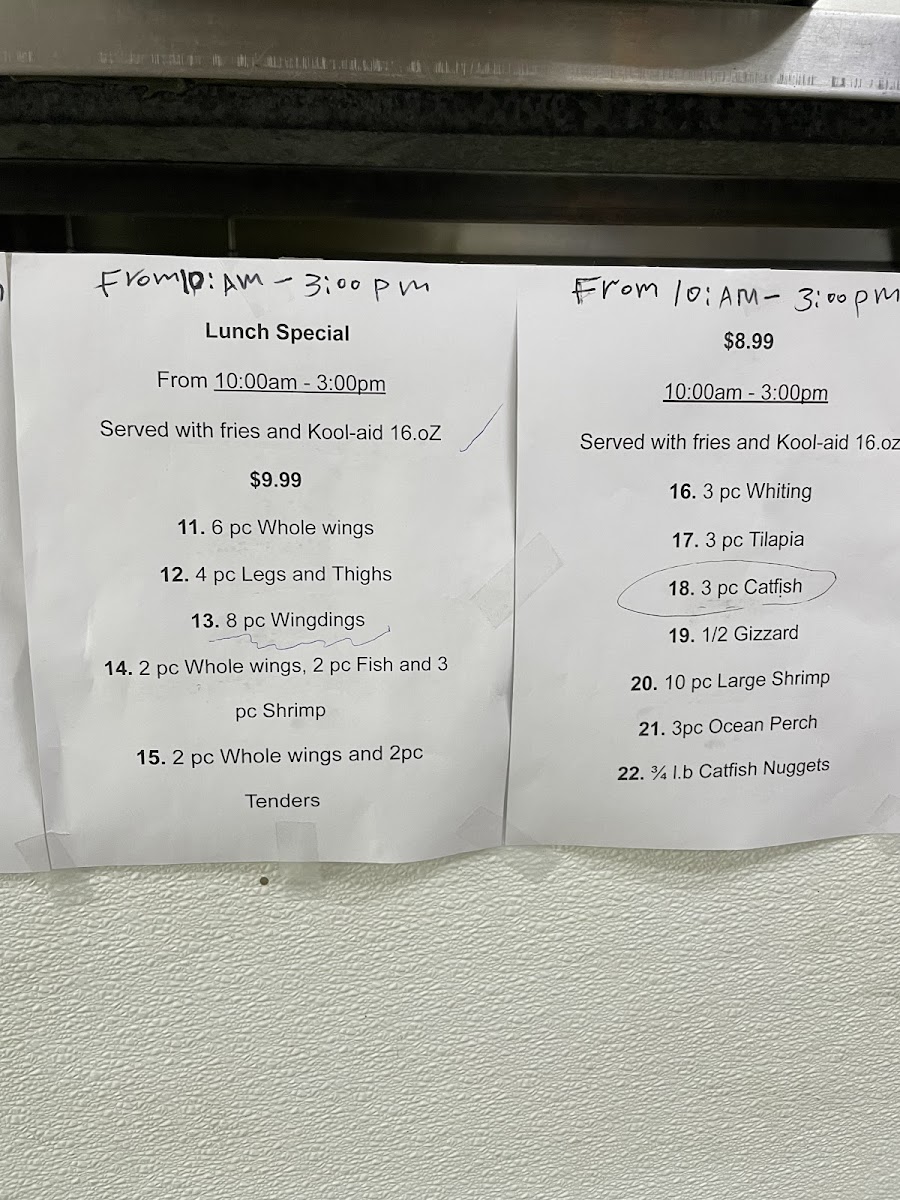 From 10: AM - 3:00 pm
Lunch Special
From 10:00am - 3:00pm
Served with fries and Kool-aid 16.oZ
$9.99
11. 6 pc Whole wings
12. 4 pc Legs and Thighs
13. 8 pc Wingdings
14. 2 pc Whole wings, 2 pc Fish and 3
pc Shrimp
15. 2 pc Whole wings and 2pc
Tenders
From 10: AM - 3:00 pm
$8.99
10:00am - 3:00pm
Served with fries and Kool-aid 16.oz
16. 3 pc Whiting
17. 3 pc Tilapia
18. 3 pc Catfish
19. 1/2 Gizzard
20. 10 pc Large Shrimp
21. 3pc Ocean Perch
22. ¾ l.b Catfish Nuggets